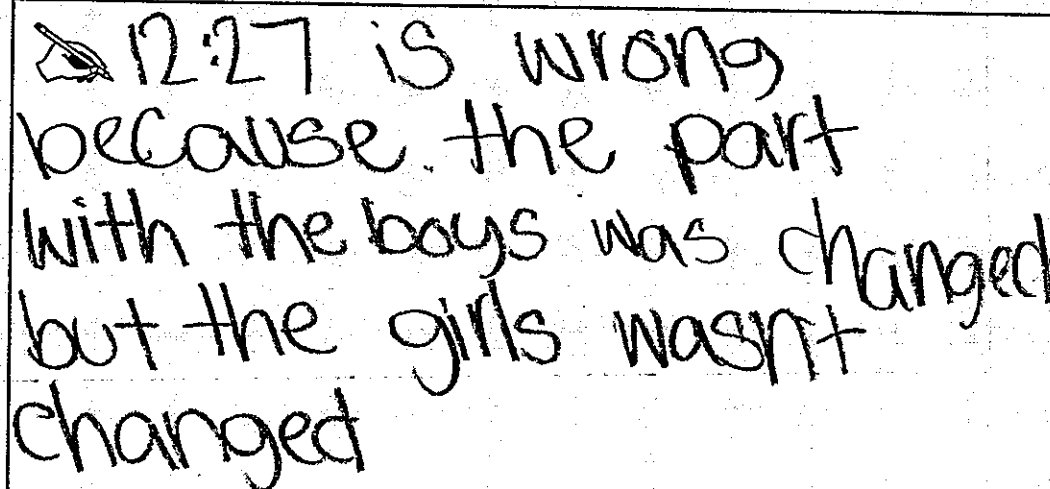 12:27 is wrong
because the part
with the boys was changed
but the girls wasn't
changed